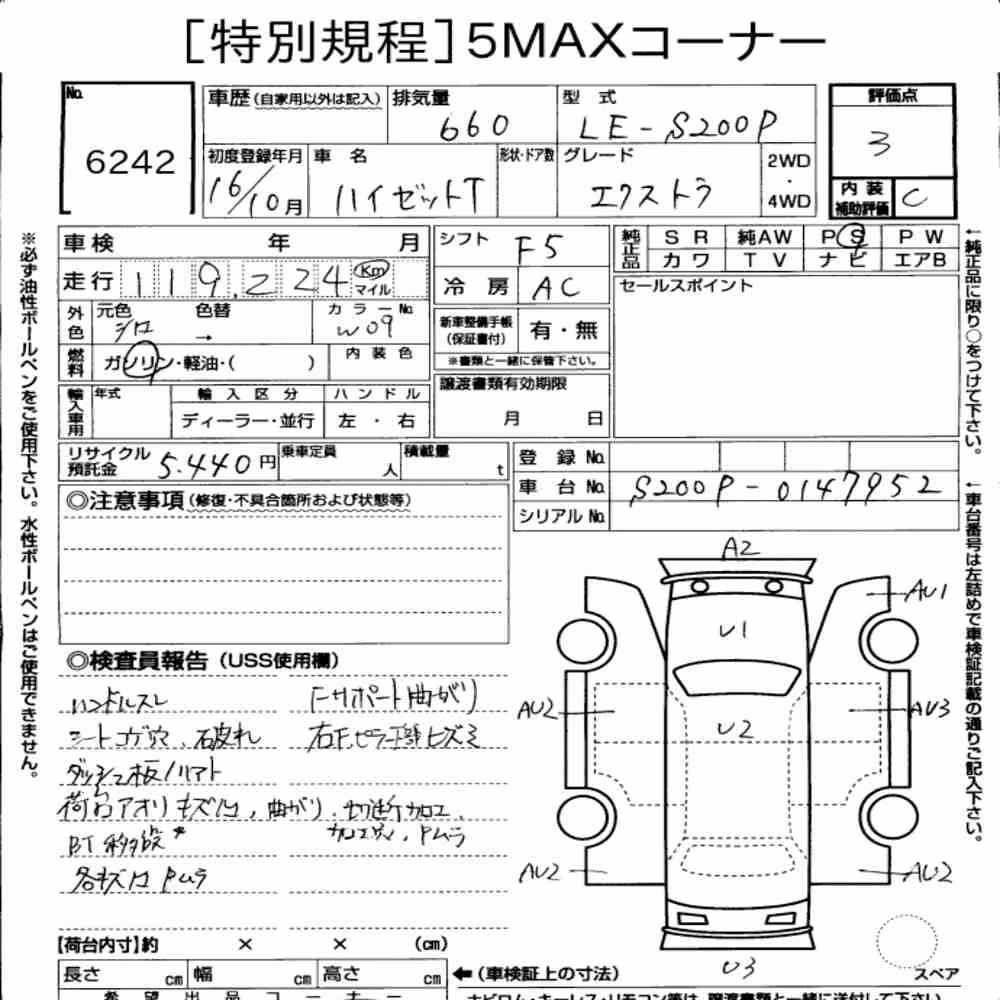 ［特別規程］5MAXコーナー
No. 6242
車歴（自家用以外は記入） 排気量 660 型式 LE-S200P
初度登録年月 16/10月 車名 ハイゼットT 形状・ドア数 グレード エクストラ 2WD・4WD
評価点 3
内装補助評価 C
※必ず油性ボールペンをご使用下さい。水性ボールペンはご使用できません。
車検 年 月
走行 119,224 Km マイル
外色 元色 シロ 色替 → カラーNo. W09
燃料 ガソリン・軽油・( ) 内装色
輸入車用 年式 輸入区分 ディーラー・並行 ハンドル 左・右
シフト F5
冷房 AC
新車整備手帳（保証書付） 有・無
※書類と一緒に保管下さい。
譲渡書類有効期限
月 日
純正品 SR 純AW PS PW
カワ TV ナビ エアB
セールスポイント
←純正品に限り○をつけて下さい。
リサイクル預託金 5.440円 乗車定員 人 積載量 t
登録No.
車台No. S200P-0147952
シリアルNo.
←車台番号は左詰めで車検証記載の通りご記入下さい。
◎注意事項（修復・不具合箇所および状態等）
◎検査員報告（USS使用欄）
ハンドルスレ Fサポート曲がり
シートコゲ穴、破れ 右Fピラー下部ヒズミ
ダッシュ板ノリアト
荷台アオリキズ凹、曲がり、切断加工
各キズ凹 Pムラ
A2
AU1
U1
AU2
AU3
U2
AU2
AU2
U3
スペア
【荷台内寸】約 × × （cm）
長さ cm 幅 cm 高さ cm ←（車検証上の寸法）
希望出品コーナー